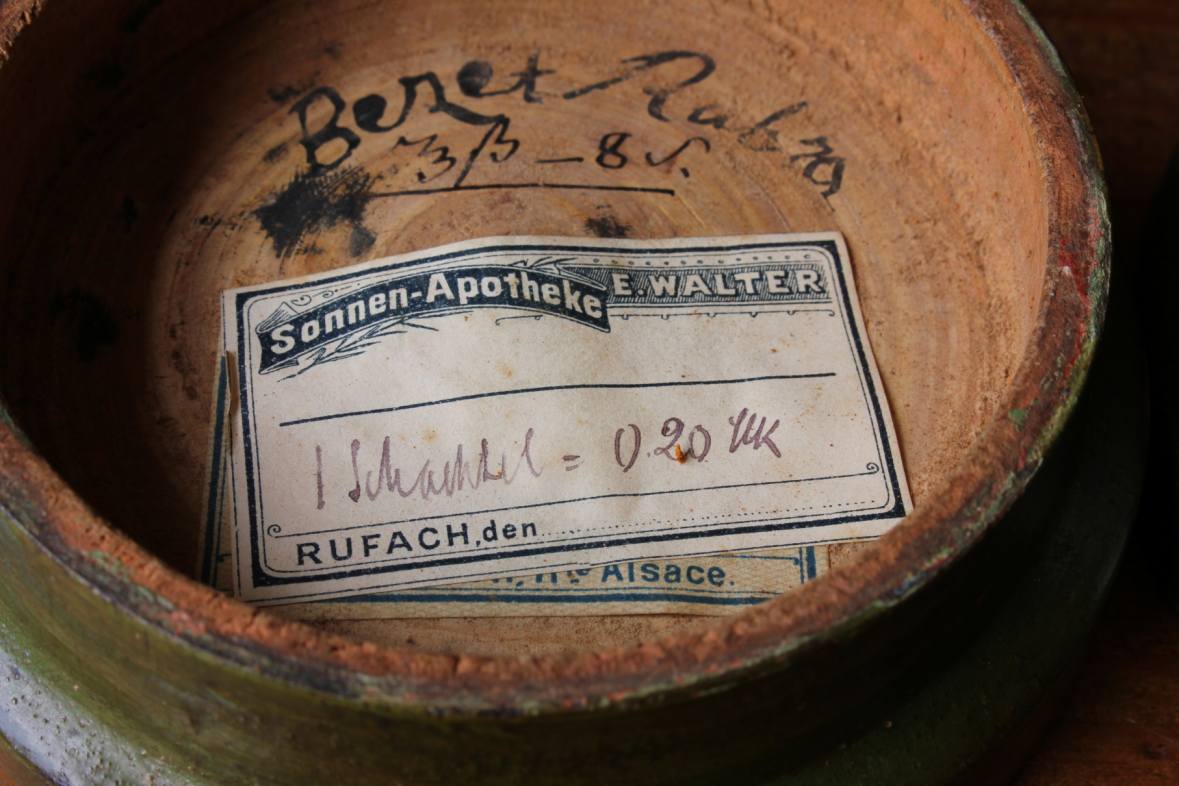 Bezet Rubra
Sonnen-Apotheke E. WALTER
1 Schachtel = 0.20 Mk
RUFACH, den
Hte Alsace.